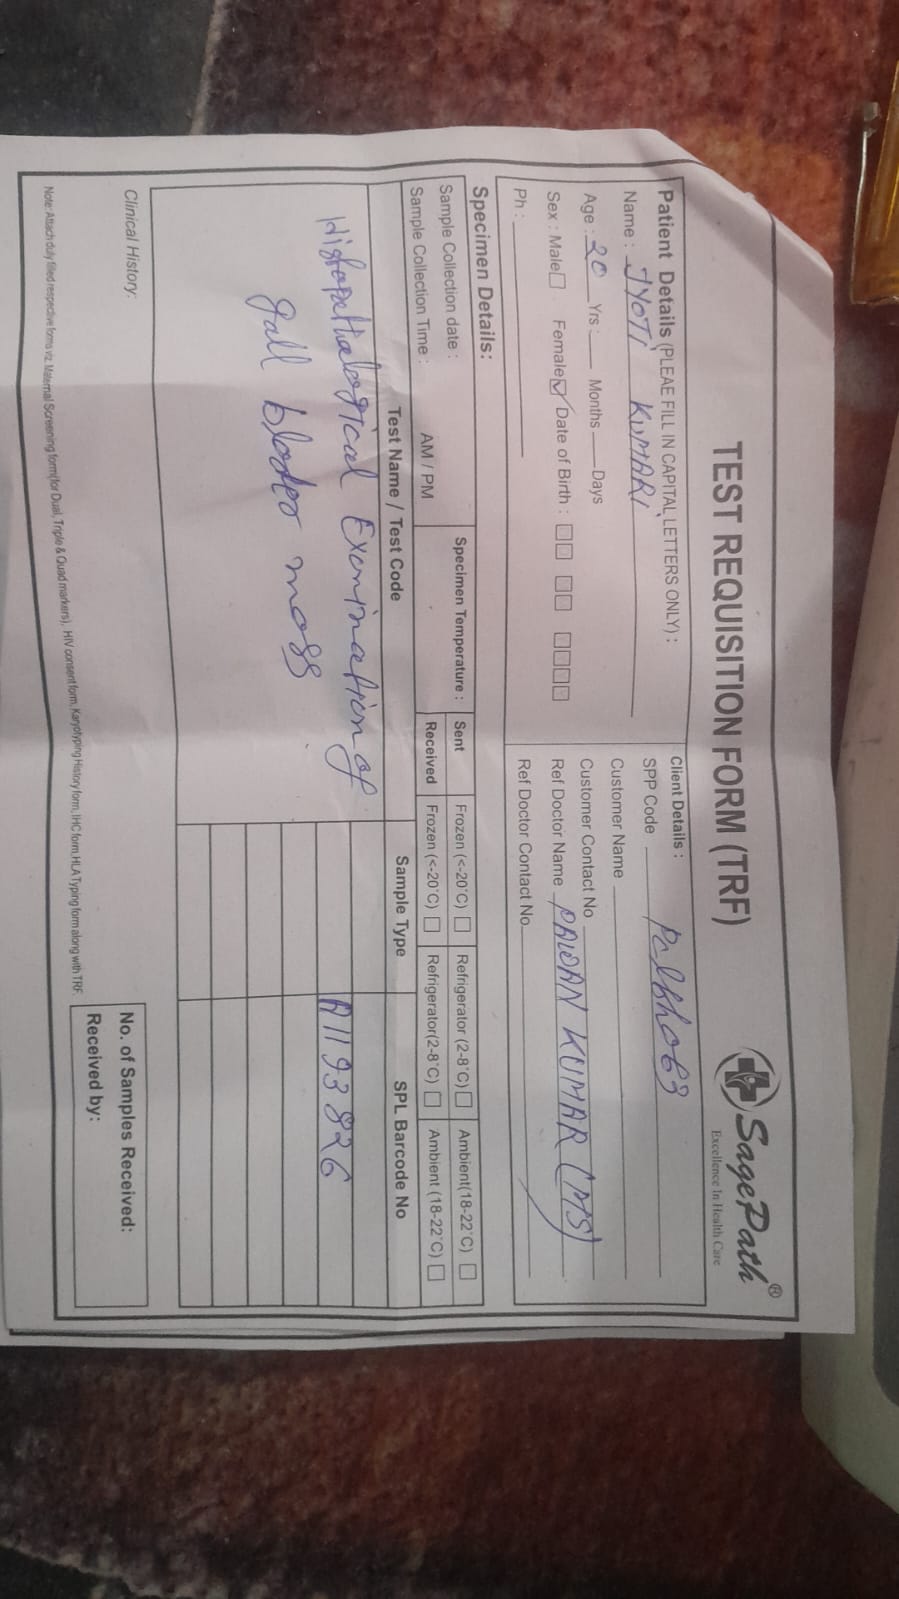 TEST REQUISITION FORM (TRF)
SagePath®
Excellence In Health Care
Patient Details (PLEAE FILL IN CAPITAL LETTERS ONLY) :
Name : JYOTI KUMARI
Age : 20 Yrs : Months Days
Sex : Male Female Date of Birth :
Ph :
Client Details :
SPP Code
Customer Name
Customer Contact No
Ref Doctor Name PAWAN KUMAR (MS)
Ref Doctor Contact No
Specimen Details:
Sample Collection date :
Sample Collection Time : AM / PM
Specimen Temperature :
Sent Frozen (<-20°C) Refrigerator (2-8°C) Ambient(18-22°C)
Received Frozen (<-20°C) Refrigerator(2-8°C) Ambient (18-22°C)
Test Name / Test Code Sample Type SPL Barcode No
Histopathological Examination of
gall blader mass
A1193826
Clinical History:
No. of Samples Received:
Received by:
Note: Attach duly filled respective forms viz. Maternal Screening form(for Dual, Triple & Quad markers), HIV consent form, Karyotyping History form, IHC form, HLA Typing form along with TRF.